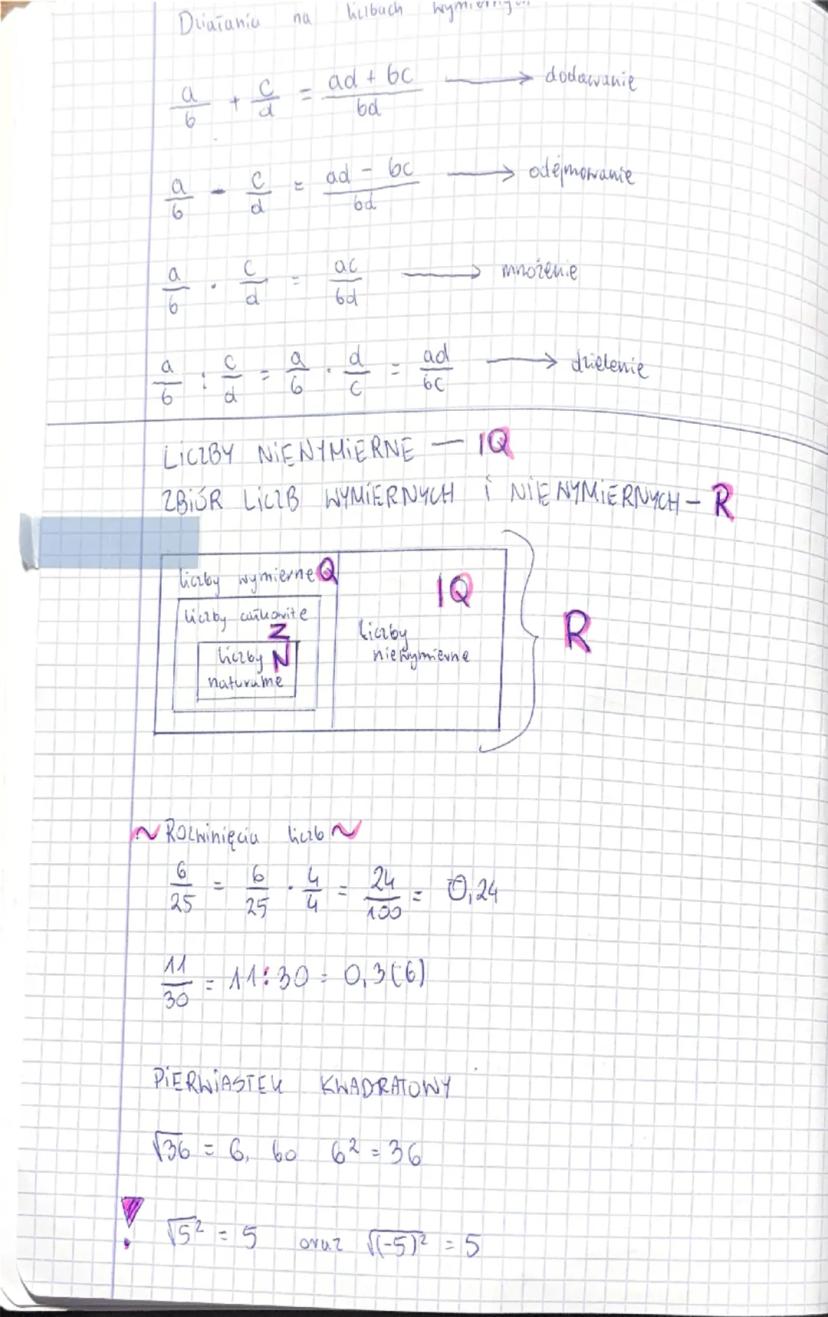 Działania na liczbach wymiernych
a/b + c/d = ad + bc/bd → dodawanie
a/b - c/d = ad - bc/bd → odejmowanie
a/b · c/d = ac/bd → mnożenie
a/b : c/d = a/b · d/c = ad/bc → dzielenie
LICZBY NIEWYMIERNE — IQ
ZBIÓR LICZB WYMIERNYCH i NIEWYMIERNYCH – R
liczby wymierne Q
liczby całkowite
Z
liczby N
naturalne
IQ
liczby
niewymierne
R
~ Rozwinięcia liczb ~
6/25 = 6/25 · 4/4 = 24/100 = 0,24
11/30 = 11:30 = 0,3(6)
PIERWIASTEK KWADRATOWY
√36 = 6, bo 6² = 36
! √5² = 5 oraz √(-5)² = 5